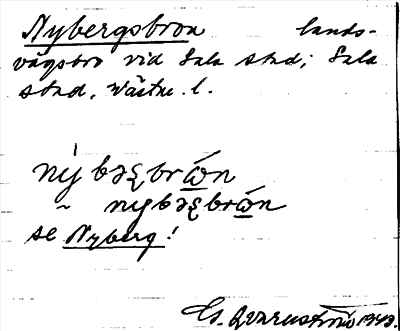 Nybergsbron lands-
vägsbro vid Sala stad; Sala
stad, Västm. l.
nýbəʂbrώ̲n
~ nybəʂbrώ̲n
se Nyberg!
Qvarnström 1943.